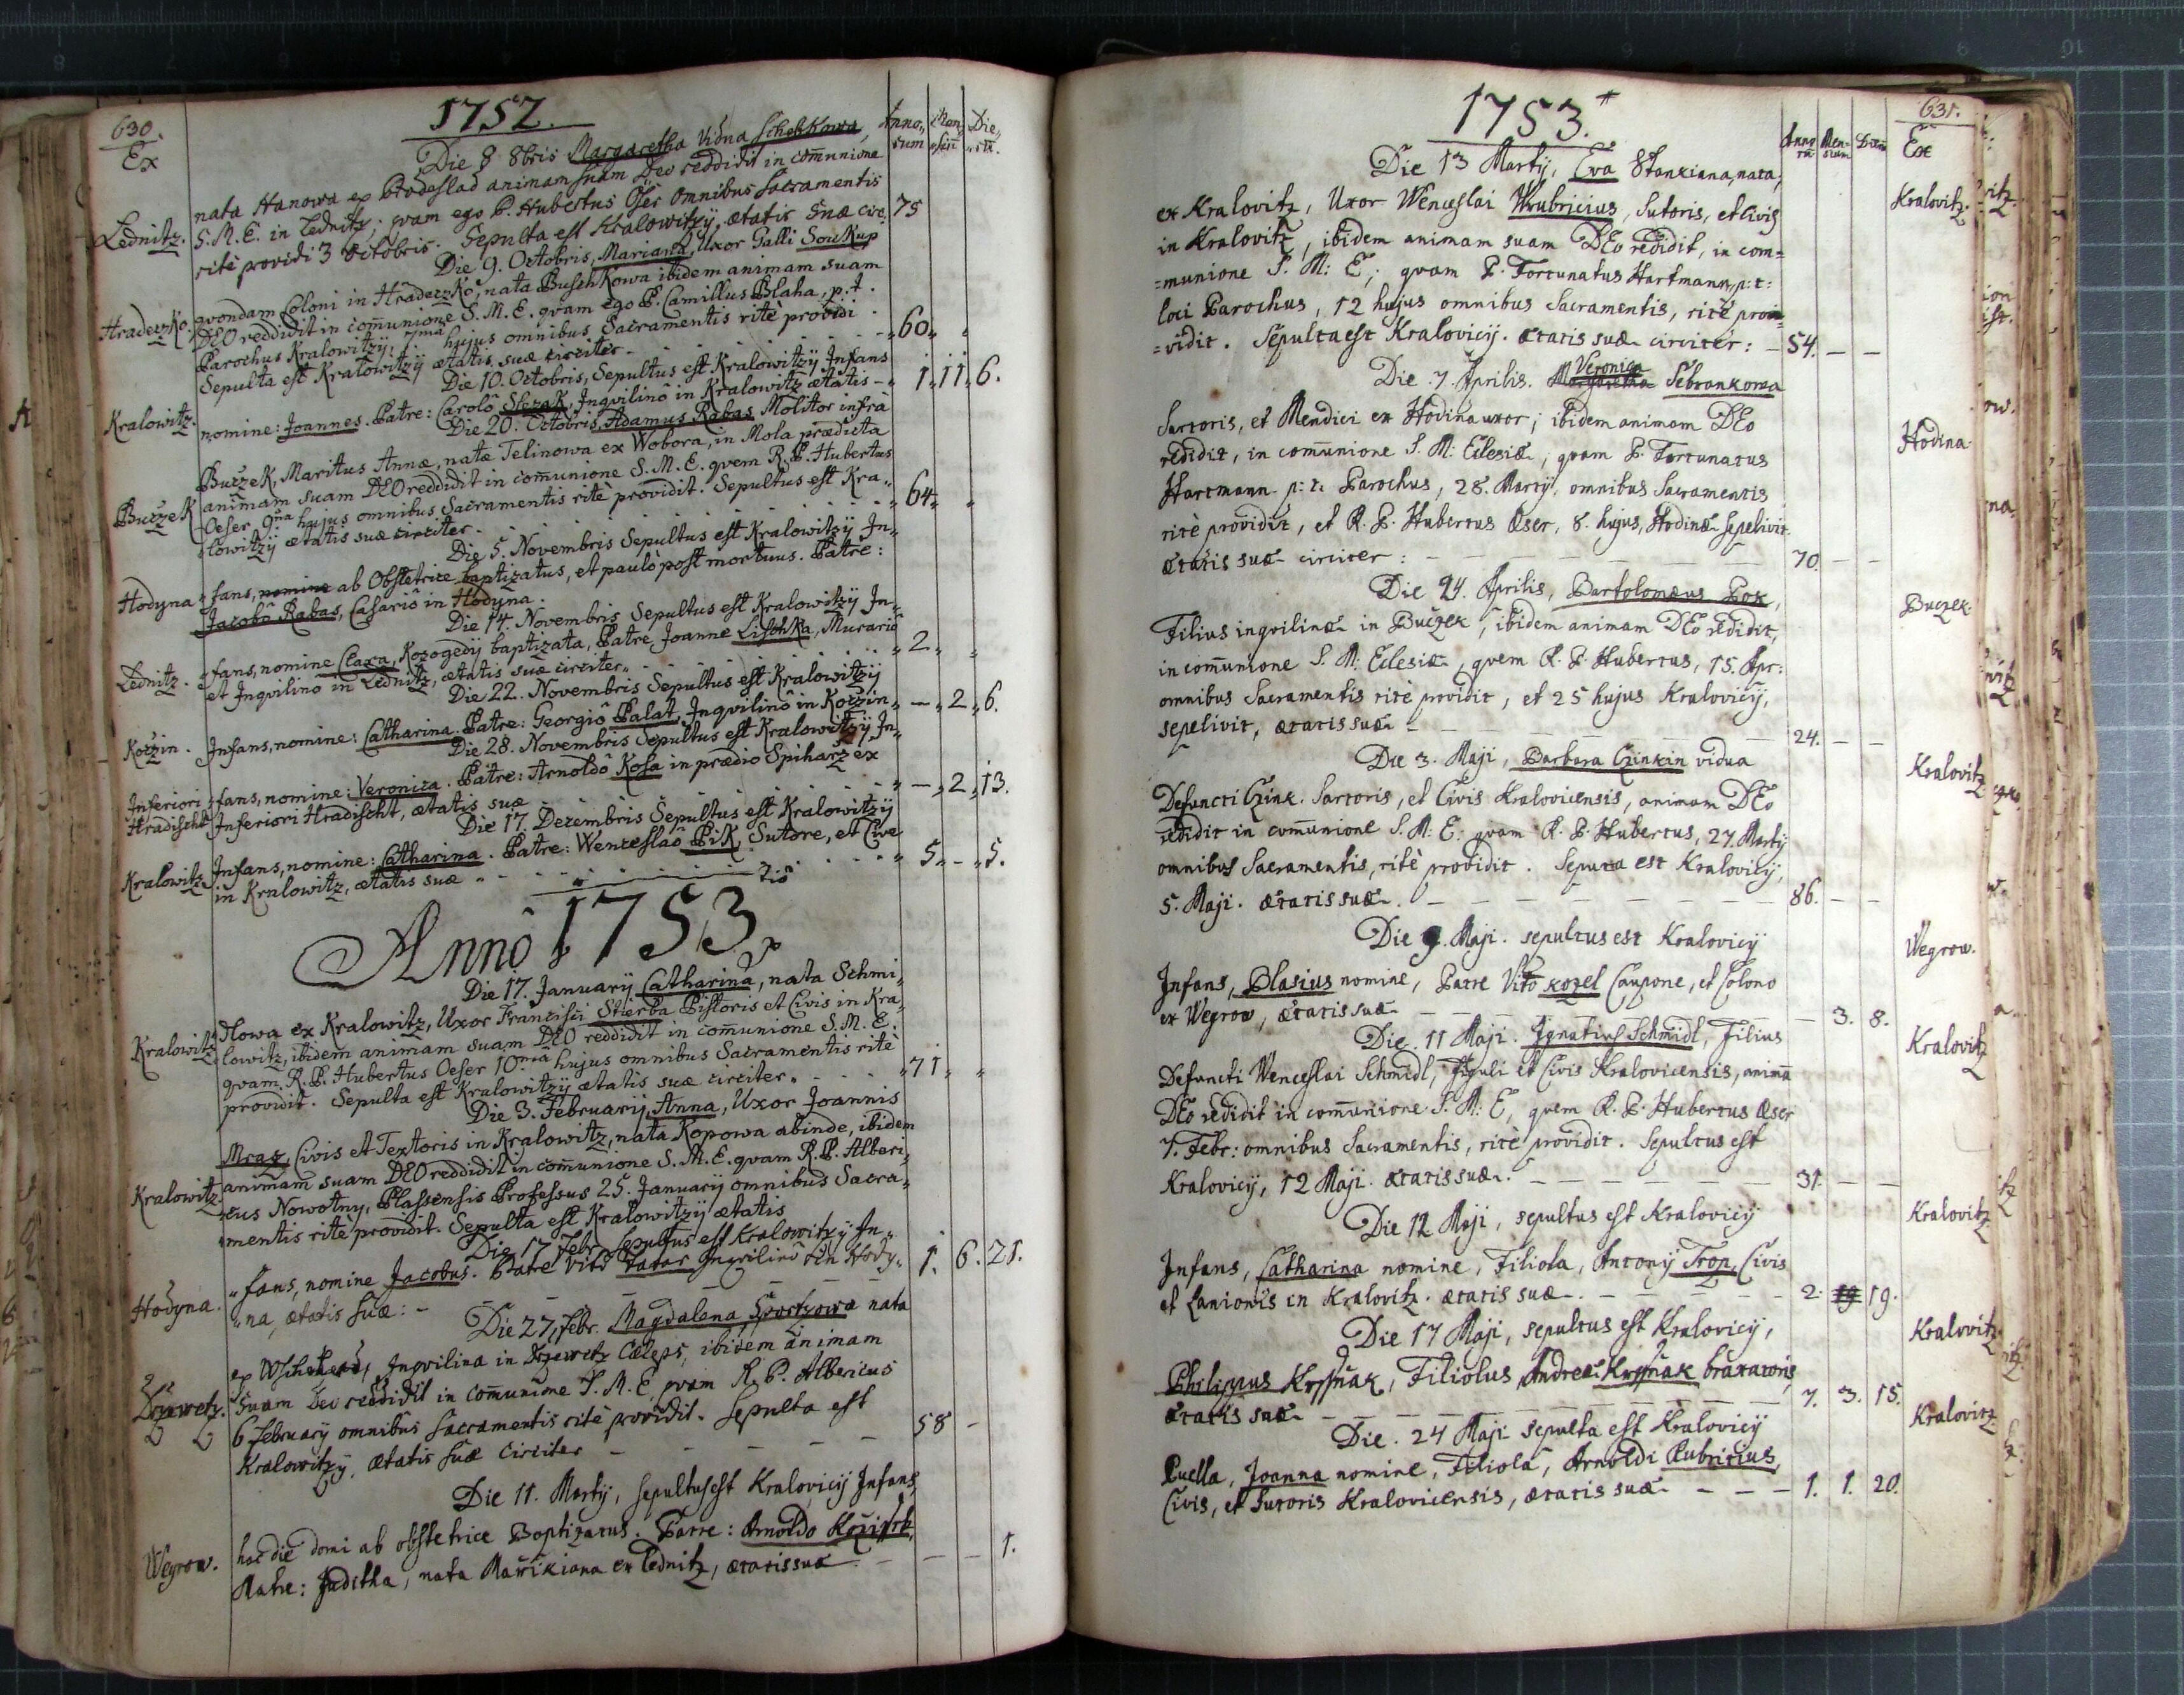 630.
1752.
Ex
Anno„ rum
Men„ sium
Die„ rum.
Die 8 8bris Margaretha Vidua Schebkowa,
nata Hanowa ex Brodeslad animam suam Deo reddidit in comunione
Lednitz. S. M. E. in Lednitz; quam ego P. Hubertus Öser omnibus Sacramentis
ritè providi 3 Octobris. Sepulta est Kralowitzÿ. ætatis suæ circ. 75
Die 9. Octobris, Mariana, Uxor Galli Soukup
Hradeczko. quondam Coloni in Hradeczko, nata Buschkowa ibidem animam suam
DEO reddidit in comunione S. M. E. quam ego P. Camillus Blaha, p. t.
Parochus Kralowitzÿ, 7ma hujus omnibus Sacramentis ritè providi.
Sepulta est Kralowitzÿ ætatis suæ circiter. „60„ „
Die 10. Octobris, Sepultus est Kralowitzÿ Infans
Kralowitz. nomine: Joannes. Patre: Carolô Slezak, Inqvilinô in Kralowitz ætatis - „ 1„11„6.
Die 20. Octobris, Adamus Rabas Molitor infrà
Buczek, Maritus Annæ, natæ Telinowa ex Wobora, in Mola prædicta
Buczek animam suam DEO reddidit in comunione S. M. E. qvem R. P. Hubertus
Oeser 9na hujus omnibus Sacramentis ritè providit. Sepultus est Kra„
lowitzÿ ætatis suæ circiter. „64„ „
Die 5. Novembris Sepultus est Kralowitzÿ In„
Hodyna „fans, nomine ab Obstetrice baptizatus, et paulò post mortuus. Patre:
Jacobô Rabas, Casariô in Hodyna.
Die 14. Novembris Sepultus est Kralowitzÿ In„
Lednitz. „fans, nomine Clara, Kozogedÿ baptizata, Patre Joanne Lischka, Murariô
et Inqvilinô in Lednitz, ætatis suæ circiter. „2„ „
Die 22. Novembris Sepultus est Kralowitzÿ
Koczin. Infans, nomine: Catharina. Patre: Georgiô Palat, Inqvilinô in Koczin„ — „2„6.
Die 28. Novembris Sepultus est Kralowitzÿ In„
Inferiori „fans, nomine: Veronica. Patre: Arnoldô Kosa in prædio Spiharz ex
Hradischt Inferiori Hradischt, ætatis suæ „ — „2„13.
Die 17. Decembris Sepultus est Kralowitzÿ
Kralowitz. Infans, nomine: Catharina. Patre: Wenceslaô Pik, Sutore, et Cive
in Kralowitz, ætatis suæ „ 5„ - „5.
Annô 1753
Die 17. Januarÿ Catharina, nata Schmi„
dlowa ex Kralowitz, Uxor Francisci Stierba Pistoris et Civis in Kra„
Kralowitz lowitz, ibidem animam suam DEO reddidit in comunione S. M. E.
quam R. P. Hubertus Oeser 10ma hujus omnibus Sacramentis ritè
providit. Sepulta est Kralowitzÿ ætatis suæ circiter. „71„ „
Die 3. Februarij, Anna, Uxor Joannis
Mraz, Civis et Textoris in Kralowitz, nata Kopowa abinde, ibidem
Kralowitz. animam suam DEO reddidit in comunione S. M. E. quam R. P. Alberi„
cus Nowotny, Plassensis Professus 25. Januarÿ omnibus Sacra„
mentis ritè providit. Sepulta est Kralowitzÿ ætatis
Die 17 Febr. Sepultus est Kralowitzÿ In„
„fans, nomine Jacobus. Patre Vitô Tatar Inqvilinô in Hody„ 1. 6. 21.
Hodyna. „na, ætatis suæ: -
Die 27 Febr. Magdalena nata
Inqvilina in Cælebs, ibidem animam
suam Deo reddidit in comunione S. M. E. quam R. P. Albericus
6 Februarÿ omnibus Sacramentis ritè providit. Sepulta est
Kralowitzÿ, ætatis suæ circiter 58 -
Die 11. Martÿ, sepultus est Kralovicÿ Infans,
hac die domi ab obstetrice Baptizatus. Patre: Arnoldo
Wegrow. Matre: Juditha, nata Mařikiana ex Lednitz, ætatis suæ — — 1.
1753.
631.
Anno rũ
Men= sium
Dierũ
Ex
Die 13 Martÿ, Eva Stankiana, nata,
ex Kralovitz, Uxor Wenceslai Wrubricius, Sutoris, et Civis Kralovitz.
in Kralovitz, ibidem animam suam DEo ređidit, in com=
=munione S. M: E; quam P. Fortunatus Hartmann, p: t:
loci Parochus, 12 hujus omnibus Sacramentis, ritè provi=
=vidit. Sepulta est Kralovicÿ. ætatis suæ circiter: - 54. — —
Die 7. Aprilis. Margaretha Veronica Sebrankowa
Sartoris, et Mendici ex Hodina uxor; ibidem animam DEo Hodina
redidit, in comunione S. M: Eclesiæ, quam P. Fortunatus
Hartmann p: t: Parochus, 28. Martÿ, omnibus Sacramentis
ritè providit, et R. P. Hubertus Öser, 8. hujus, Hodinæ sepelivit.
ætatis suæ circiter: 70. — —
Die 24. Aprilis, Bartolomæus Pok,
Filius inqvilinæ in Buczek, ibidem animam DEo redidit, Buczek.
in comunione S. M: Eclesiæ, quem R. P. Hubertus, 15. Apr:
omnibus Sacramentis ritè providit, et 25 hujus Kralovicÿ,
sepelivit, ætatis suæ 24. — —
Die 3. Maji, Barbara Czinkin vidua
Defuncti Czink. Sartoris, et Civis Kralovicensis, animam DEo Kralovitz
redidit in comunione S. M: E: quam R. P. Hubertus, 27 Martÿ
omnibus Sacramentis, ritè providit. Sepulta est Kralovicÿ,
5. Maji. ætatis suæ. 86. — —
Die 9. Maji. sepultus est Kralovicÿ
Infans, Blasius nomine, Patre Vito Kozel Caupone, et Colono Wegrow.
ex Wegrow, ætatis suæ — 3. 8.
Die 11 Maji. Ignatius Schmidl, Filius
Defuncti Wenceslai Schmidl, Figuli et Civis Kralovicensis, animã Kralovitz
DEo redidit in comunione S. M: E, quem R. P. Hubertus Öser
7. Febr: omnibus Sacramentis, ritè providit. Sepultus est
Kralovicÿ, 12 Maji. ætatis suæ. 31. — —
Die 12 Maji, sepultus est Kralovicÿ
Infans, Catharina nomine, Filiola, Antonÿ Trop, Civis Kralovitz
et Lanionis in Kralovitz. ætatis suæ. 2. 19 19.
Die 17 Maji, sepultus est Kralovicÿ,
Philippus Krssňak, Filiolus Andreæ Krssňak braxatoris, Kralovitz
ætatis suæ 7. 3. 15.
Die. 24 Maji sepulta est Kralovicÿ
Puella, Joanna nomine, Filiola, Arnoldi Rubricius, Kralovitz
Civis, et Sutoris Kralovicensis, ætatis suæ 1. 1. 20.